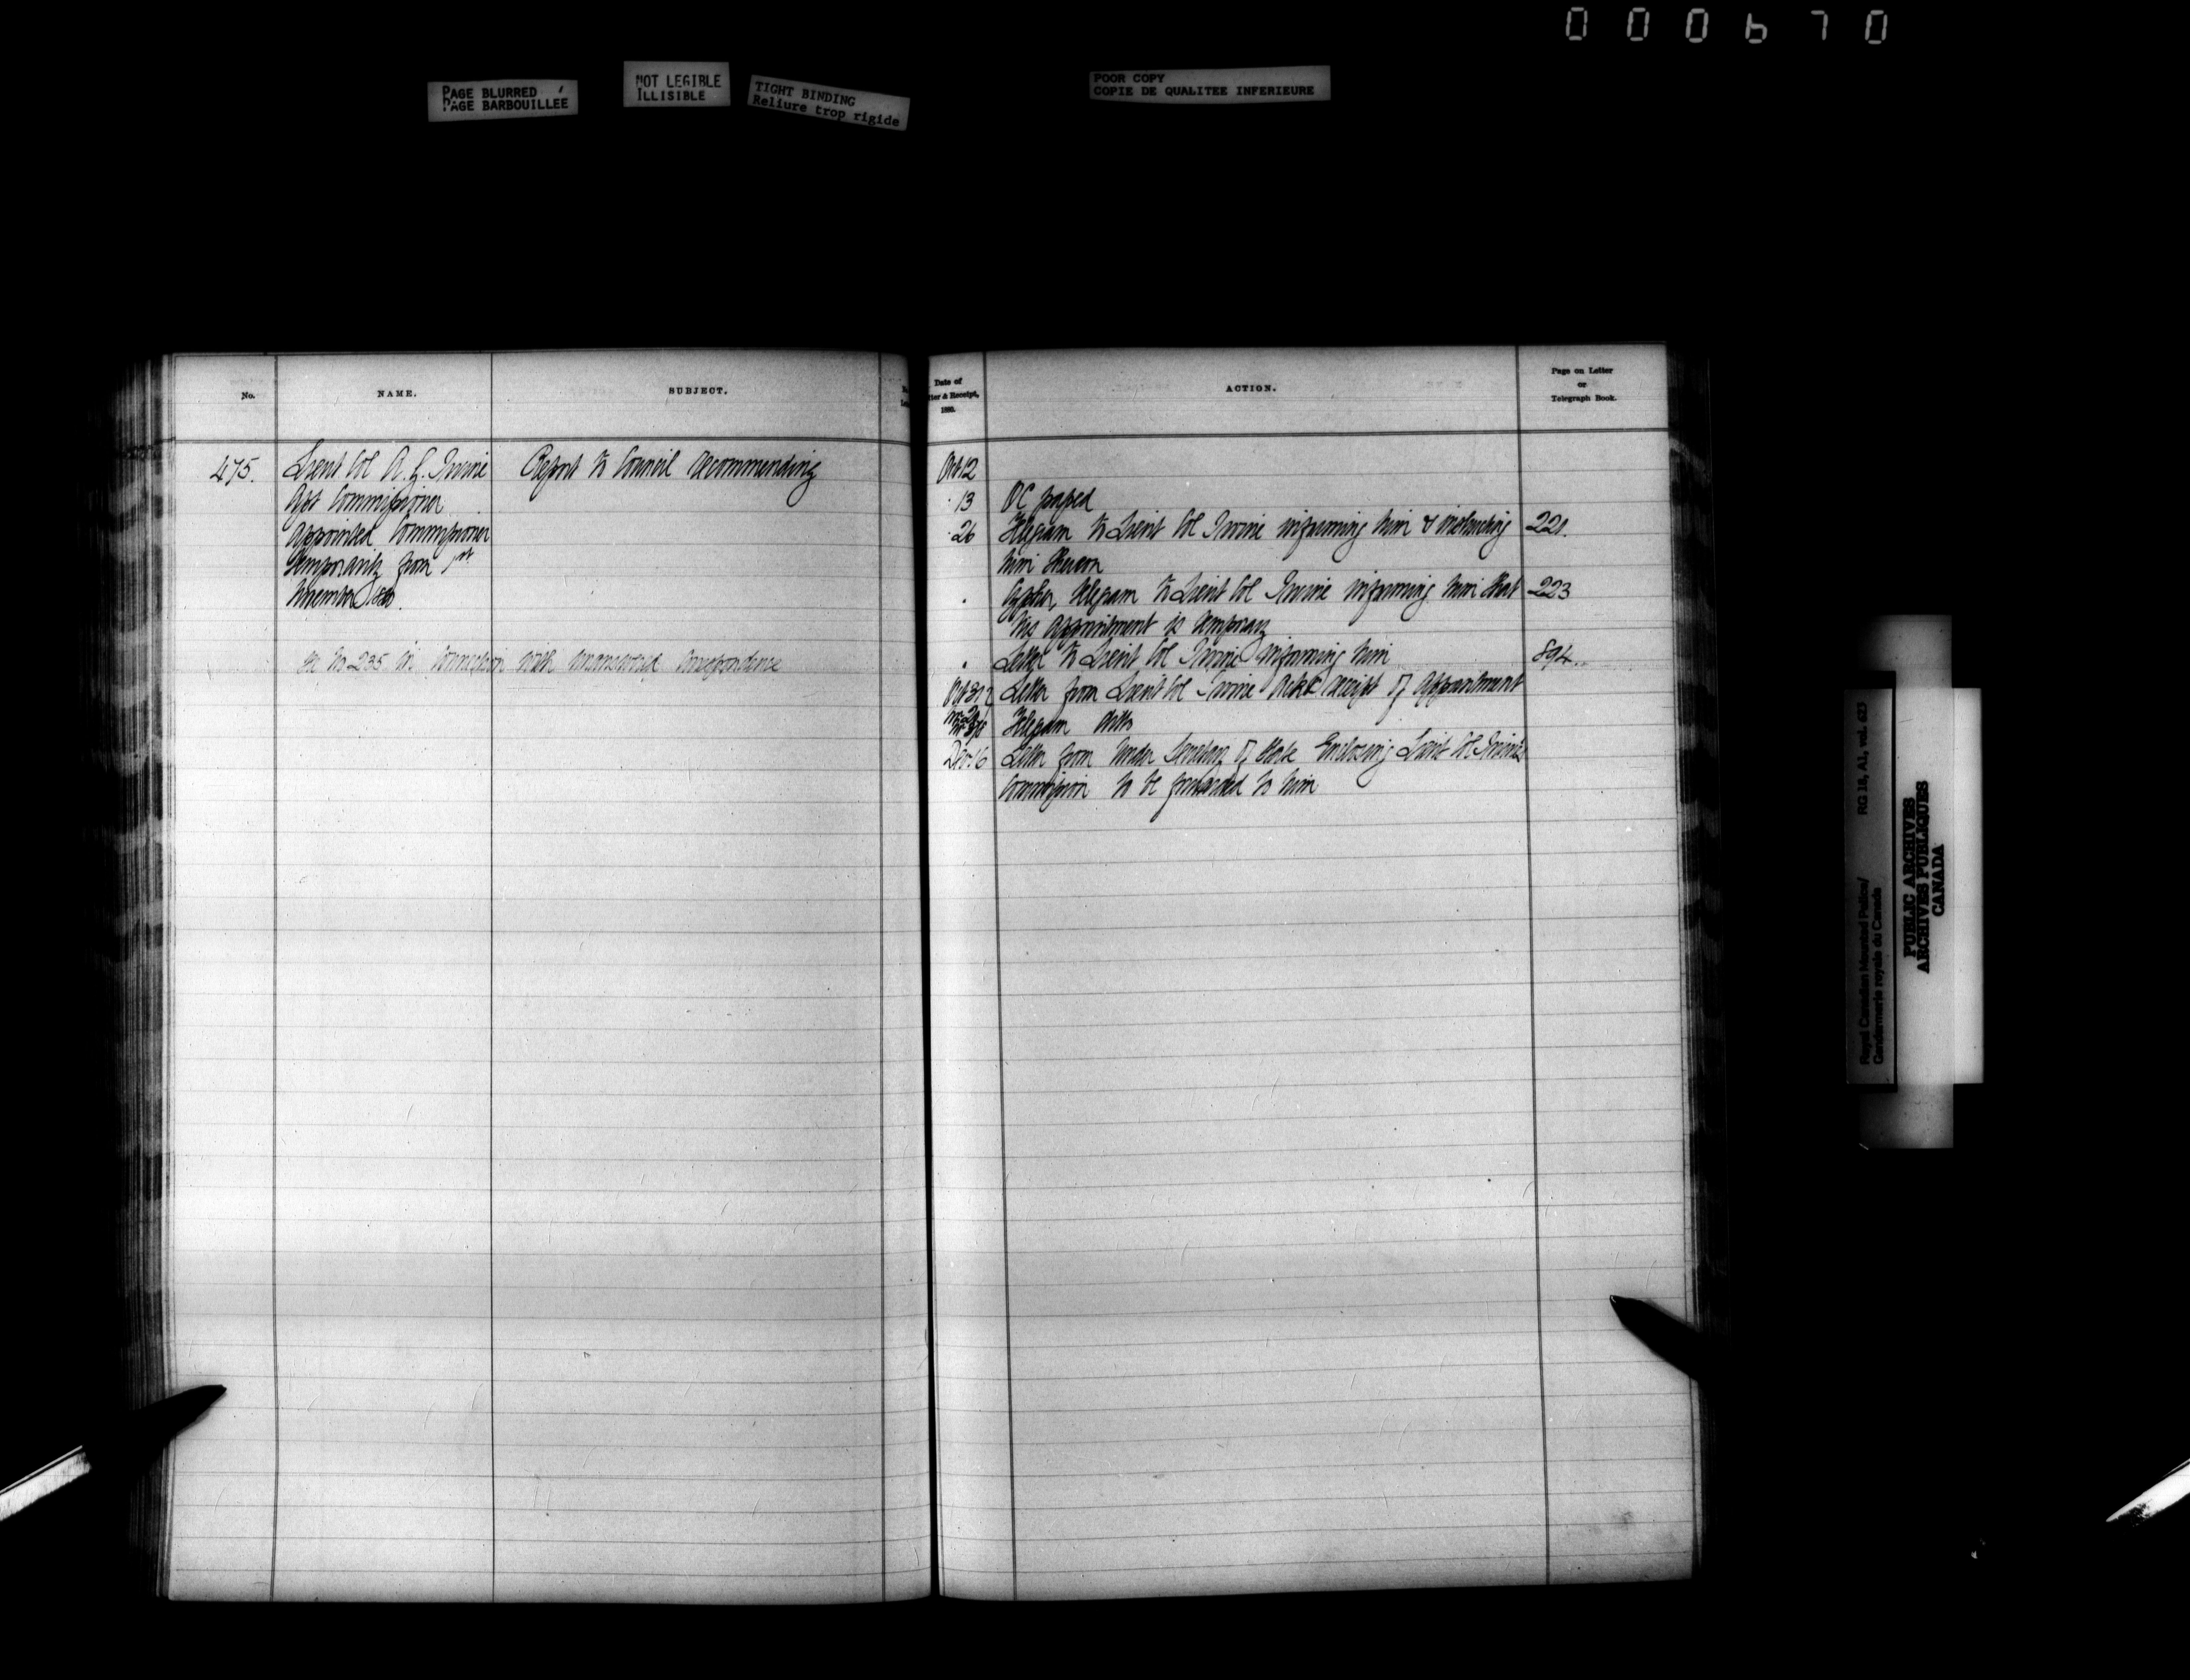 000670
PAGE BLURRED
PAGE BARBOUILLEE
NOT LEGIBLE
ILLISIBLE
TIGHT BINDING
Reliure trop rigide
POOR COPY
COPIE DE QUALITEE INFERIEURE
No.
NAME.
SUBJECT.
475.
Lieut Col A. G. Irvine
Asst Commissioner
appointed Commissioner
temporarily from 1st
November 1880.
Report to Council recommending
No 235 in connection with correspondence
Date of
& Receipt,
1880.
ACTION.
Page on Letter
or
Telegraph Book.
Oct 12
" 13 OC passed
" 26 Telegram to Lieut Col Irvine informing him & instructing 221.
him thereon
" Cypher telegram to Lieut Col Irvine informing him that 223
his appointment is temporary
" Letter to Lieut Col Irvine informing him 894.
Oct 31 Letter from Lieut Col Irvine Ackg receipt of appointment
Telegram ditto
Dec 16 Letter from Under Secretary of State Enclosing Lieut Col Irvine's
Commission to be forwarded to him
Royal Canadian Mounted Police/
Gendarmerie royale du Canada
RG 18, A1, vol. 623
PUBLIC ARCHIVES
ARCHIVES PUBLIQUES
CANADA